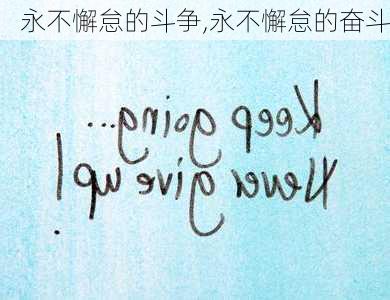 永不懈怠的斗争,永不懈怠的奋斗
Keep going...
Never give up!